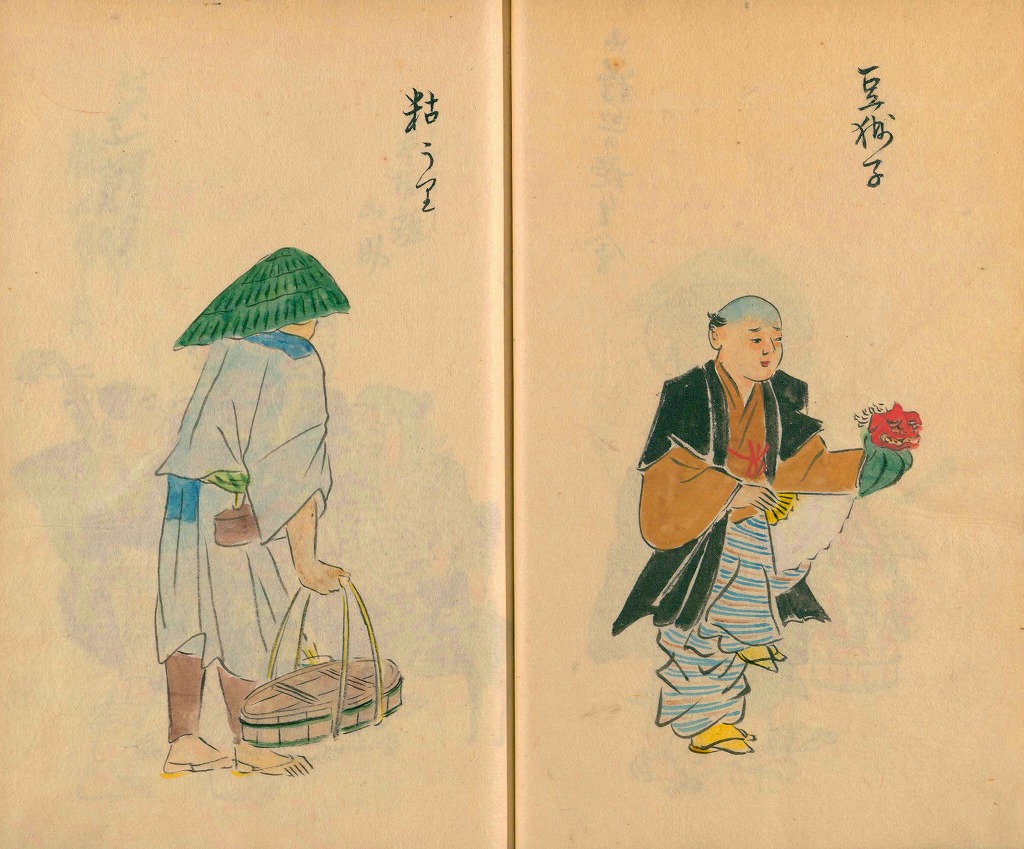 豆獅子
粘うり